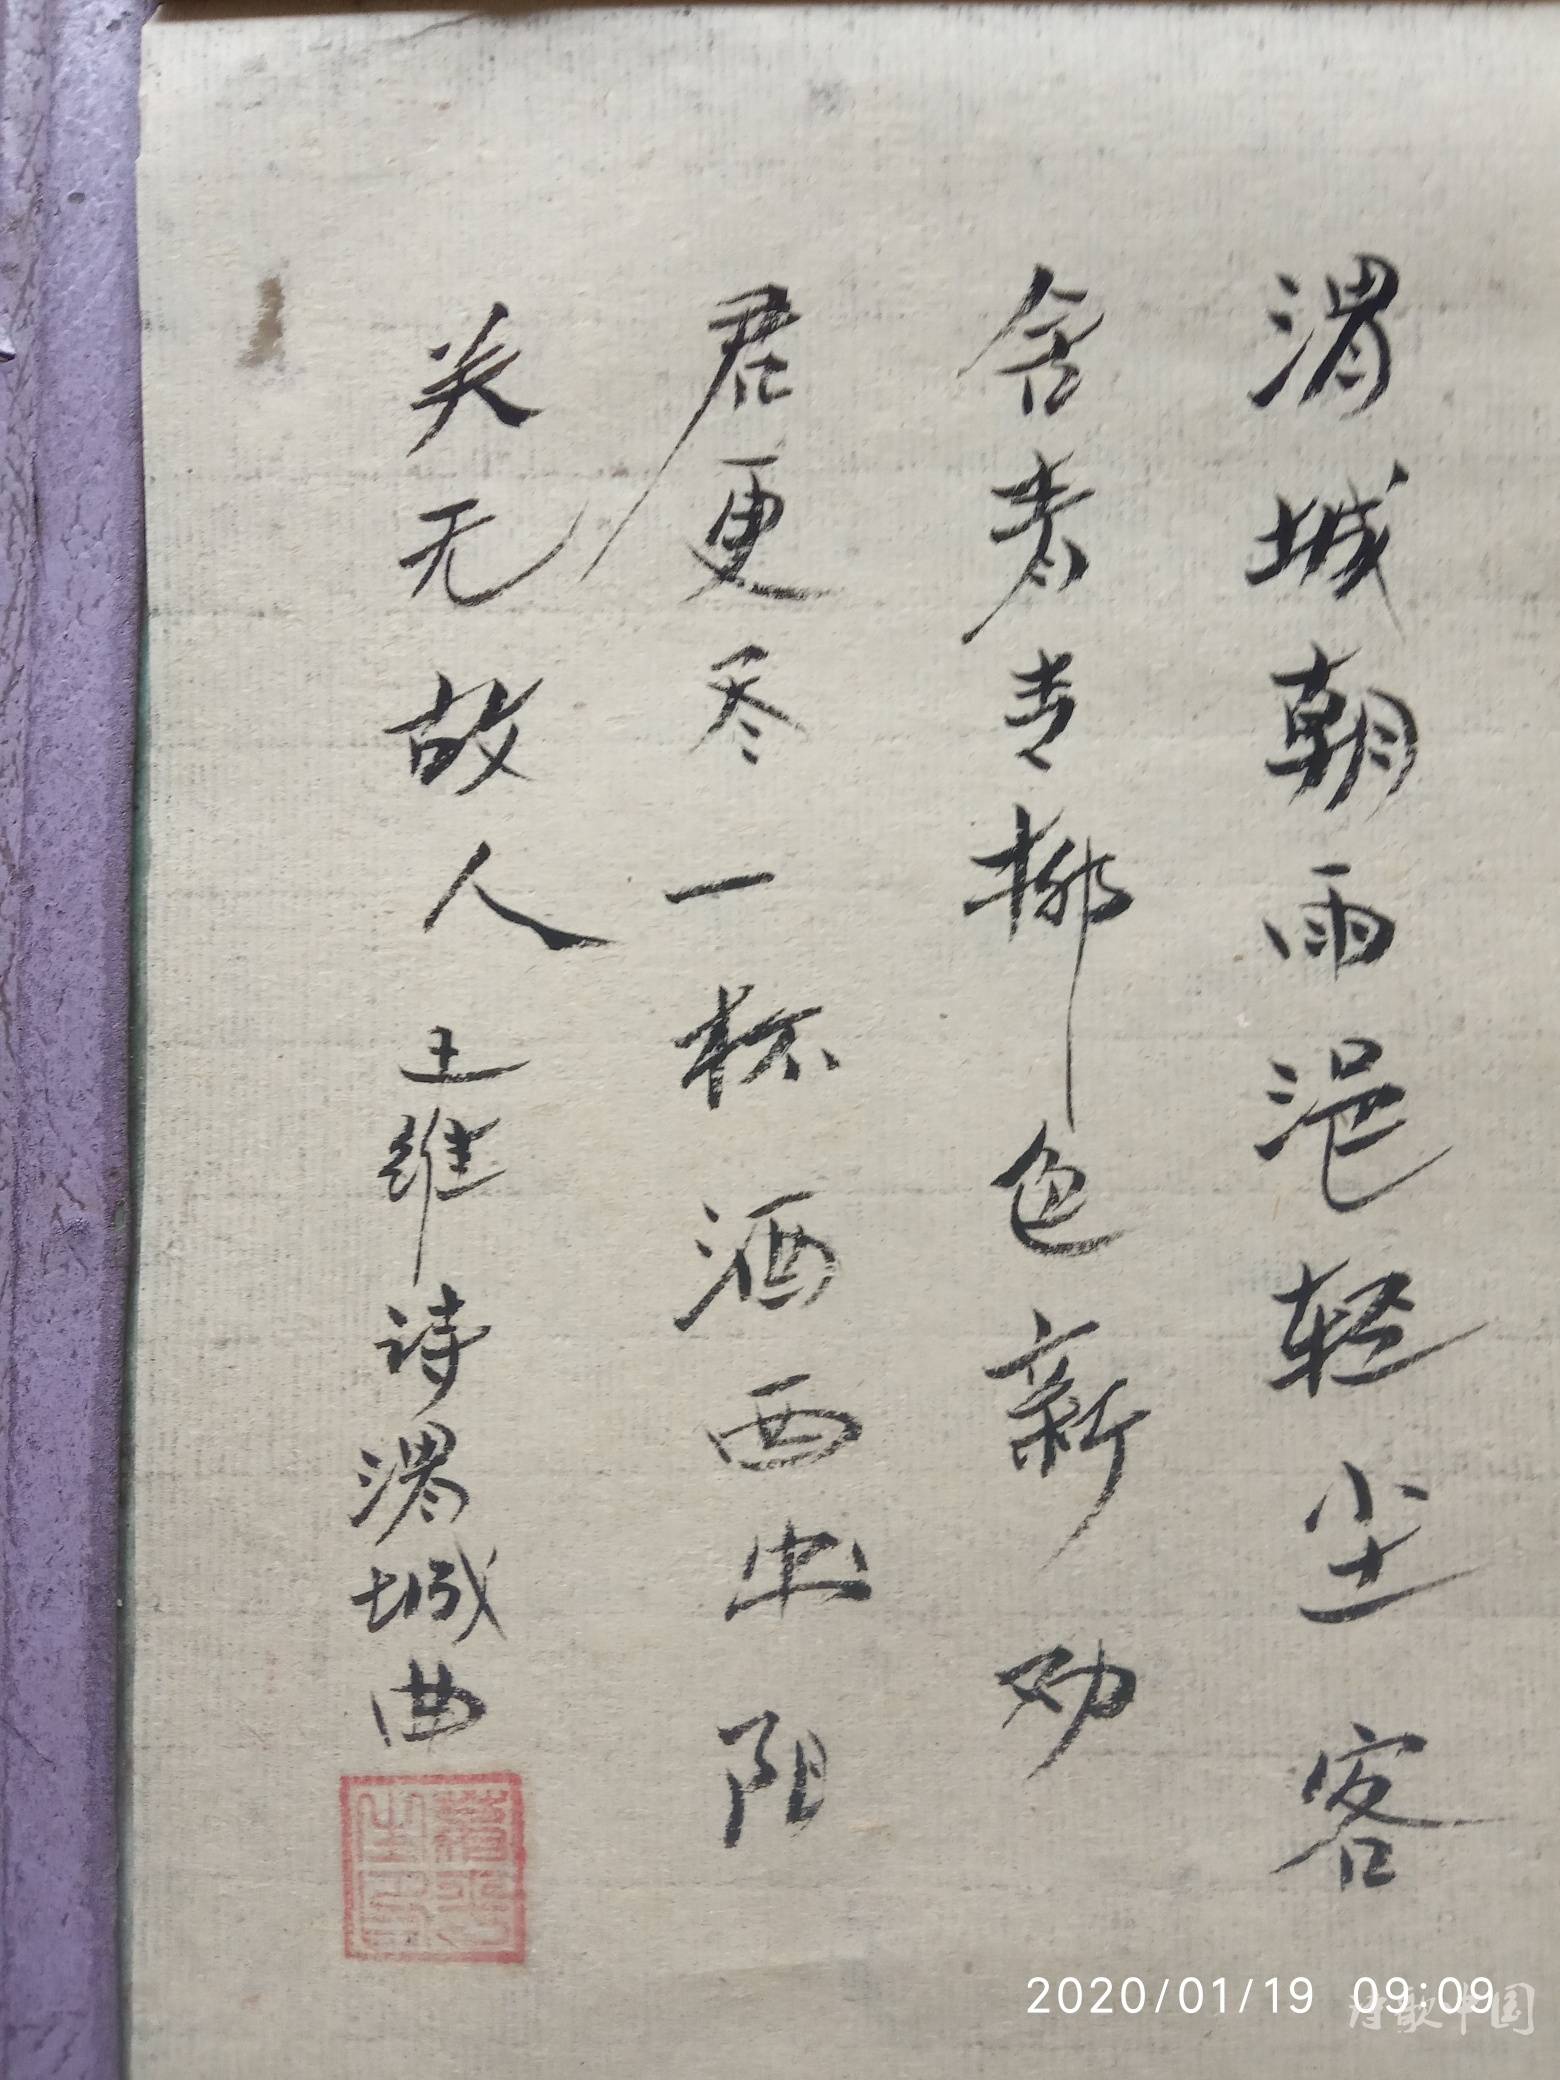 渭城朝雨浥轻尘客
舍青青柳色新劝
君更尽一杯酒西出阳
关无故人王维诗渭城曲
2020/01/19 09:09
诗歌中国